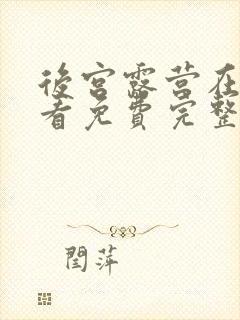 後宮露营在
看免費完整
閆萍